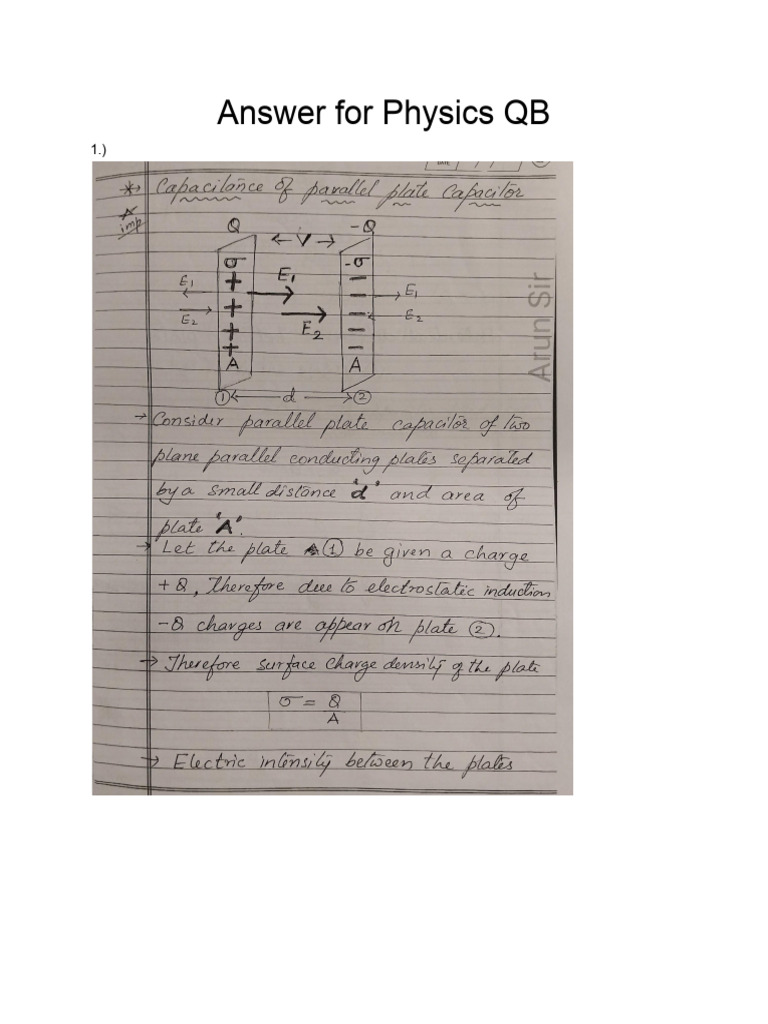 Answer for Physics QB
1.)
Capacitance of parallel plate Capacitor
imp
Q ← V → -Q
σ -σ
E₁ + E₁ − E₁
E₂ + E₂ − E₂
A A
① ← d → ②
Arun Sir
→ Consider parallel plate capacitor of two
plane parallel conducting plates separated
by a small distance 'd' and area of
plate 'A'.
→ Let the plate ① be given a charge
+Q, Therefore due to electrostatic induction
-Q charges are appear on plate ②.
→ Therefore surface charge density of the plate
σ = Q
A
→ Electric intensity between the plates